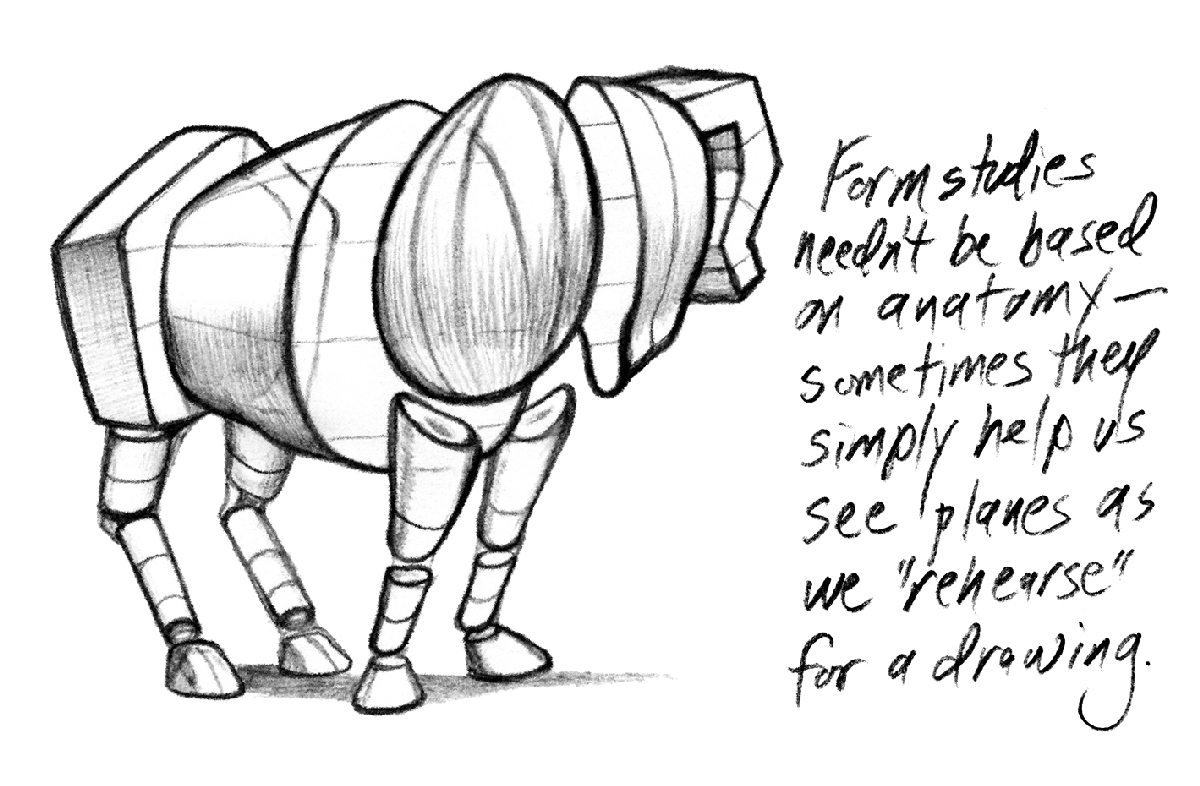 Form studies
needn't be based
on anatomy—
sometimes they
simply help us
see planes as
we "rehearse"
for a drawing.